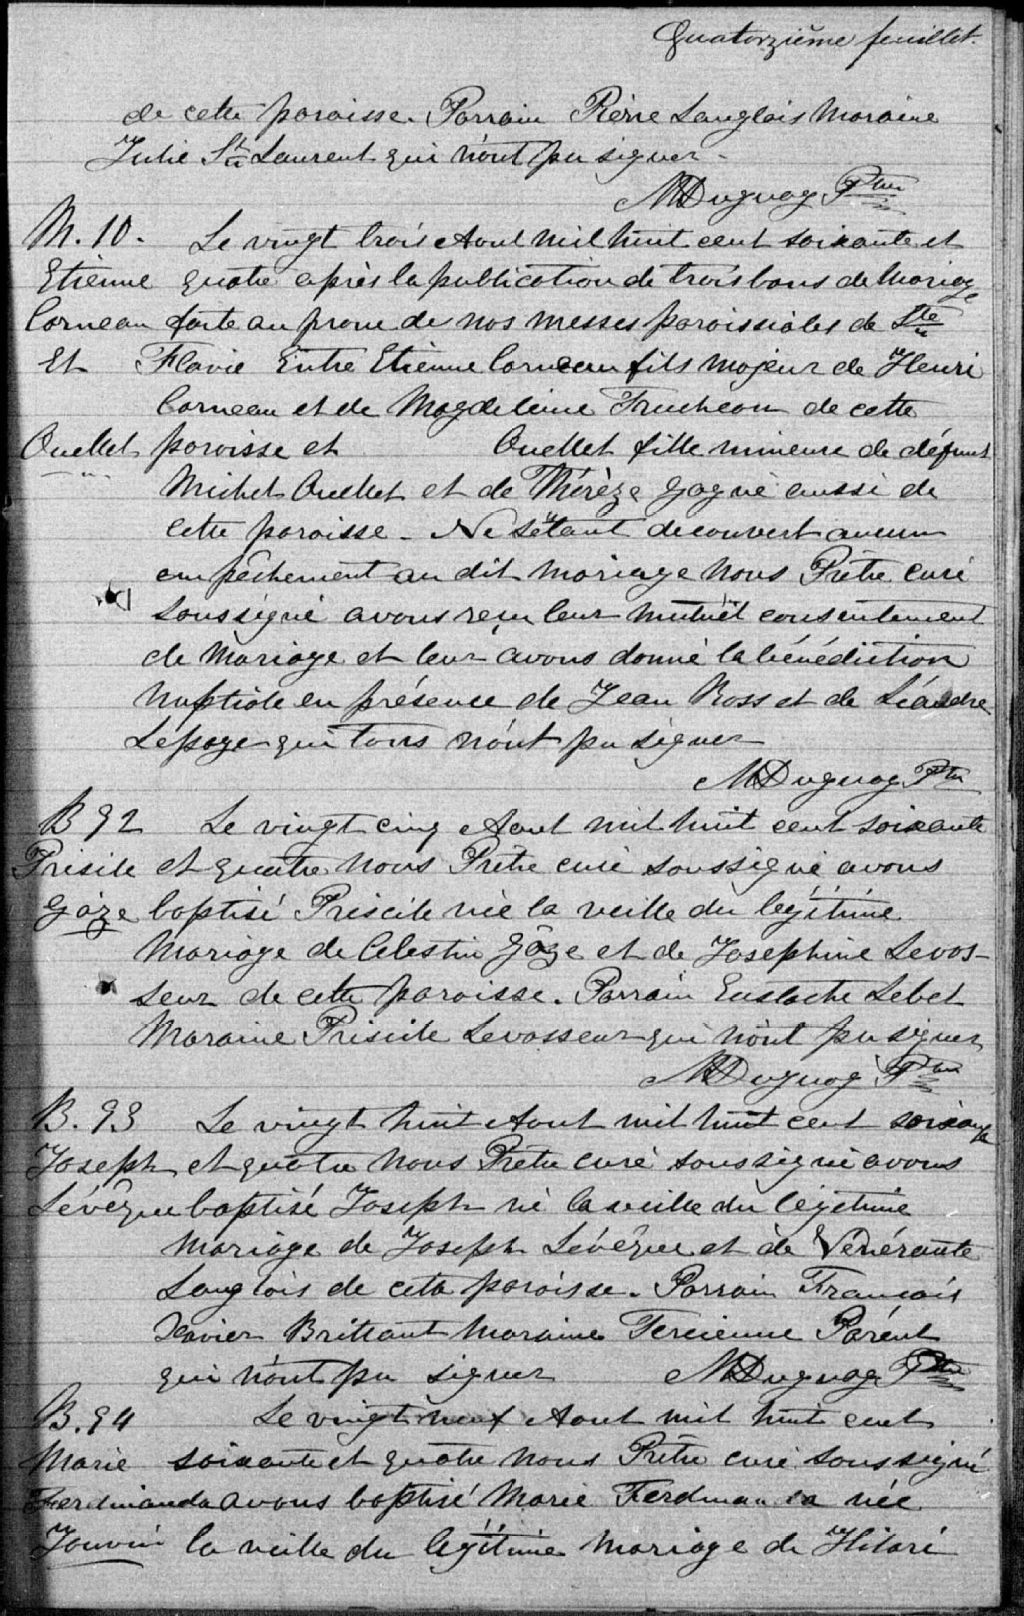 Quatorzième feuillet.
de cette paroisse. Parrain Pierre Langlois Maraine
Julie St Laurent qui n'ont pu signer.
MDuguay Ptre
M. 10. Le vingt trois Aout mil huit cent soixante et
Etienne quatre après la publication de trois bans de Mariage
Corneau faite au prone de nos messes paroissiales de Ste
Et Flavie Entre Etienne Corneau fils majeur de Henri
Corneau et de Magdeleine Trucheon de cette
Ouellet paroisse et Ouellet fille mineure de défunt
Michel Ouellet et de Thérèze Gagné aussi de
cette paroisse. Ne s'étant decouvert aucun
empêchement au dit mariage Nous Prêtre curé
soussigné avons reçu leur mutuel consentement
de Mariage et leur avons donné la bénédiction
Nuptiale en présence de Jean Ross et de Léandre
Lépage qui tous n'ont pu signer
MDuguay Ptre
B 92 Le vingt cinq Aout mil huit cent soixante
Prisile et quatre Nous Prêtre curé soussigné avons
Gâze baptisé Priscile née la veille du légitime
Mariage de Celestin Gâze et de Josephine Levas-
seur de cette paroisse. Parrain Eustache Lebel
Maraine Priscile Levasseur qui n'ont pu signer
MDuguay Ptre
B. 93 Le vingt huit Aout mil huit cent soixante
Joseph et quatre Nous Prêtre curé soussigné avons
Lévêque baptisé Joseph né la veille du légitime
Mariage de Joseph Lévêque et de Vénérante
Langlois de cette paroisse. Parrain François
Xavier Brillant Maraine Tercienne Parent
qui n'ont pu signer MDuguay Ptre
B. 94 Le vingt neuf Aout mil huit cent
Marie soixante et quatre Nous Prêtre curé soussigné
Ferdinanda avons baptisé Marie Ferdinanda née
Jouvin la veille du légitime Mariage de Hilaré